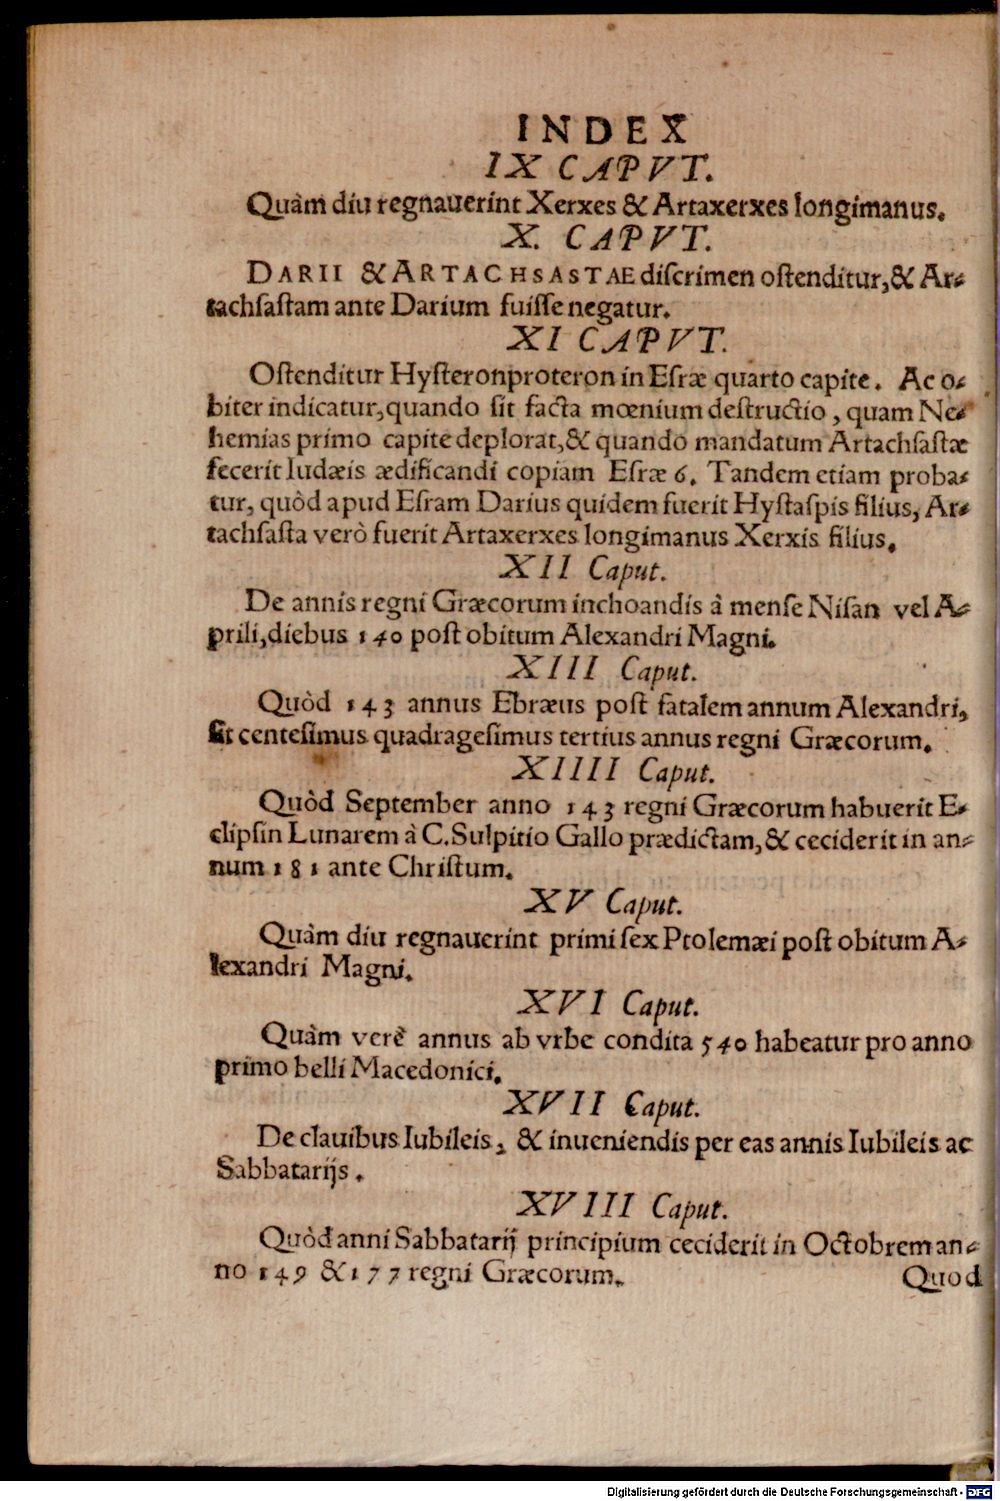 INDEX
IX CAPVT.
Quàm diu regnauerint Xerxes & Artaxerxes longimanus.
X. CAPVT.
DARII & ARTACHSASTAE discrimen ostenditur, & Ar-
tachsastam ante Darium fuisse negatur.
XI CAPVT.
Ostenditur Hysteronproteron in Esræ quarto capite. Ac o-
biter indicatur, quando sit facta mœnium destructio, quam Ne-
hemias primo capite deplorat, & quando mandatum Artachsastæ
fecerit Iudæis ædificandi copiam Esræ 6. Tandem etiam proba-
tur, quòd apud Esram Darius quidem fuerit Hystaspis filius, Ar-
tachsasta verò fuerit Artaxerxes longimanus Xerxis filius.
XII Caput.
De annis regni Græcorum inchoandis à mense Nisan vel A-
prili, diebus 140 post obitum Alexandri Magni.
XIII Caput.
Quòd 143 annus Ebræus post fatalem annum Alexandri,
sit centesimus quadragesimus tertius annus regni Græcorum.
XIIII Caput.
Quòd September anno 143 regni Græcorum habuerit E-
clipsin Lunarem à C. Sulpitio Gallo prædictam, & ceciderit in an-
num 181 ante Christum.
XV Caput.
Quàm diu regnauerint primi sex Ptolemæi post obitum A-
lexandri Magni.
XVI Caput.
Quàm verè annus ab vrbe condita 540 habeatur pro anno
primo belli Macedonici.
XVII Caput.
De clauibus Iubileis, & inueniendis per eas annis Iubileis ac
Sabbatarijs.
XVIII Caput.
Quòd anni Sabbatarij principium ceciderit in Octobrem an-
no 149 & 177 regni Græcorum.
Quod
Digitalisierung gefördert durch die Deutsche Forschungsgemeinschaft - DFG